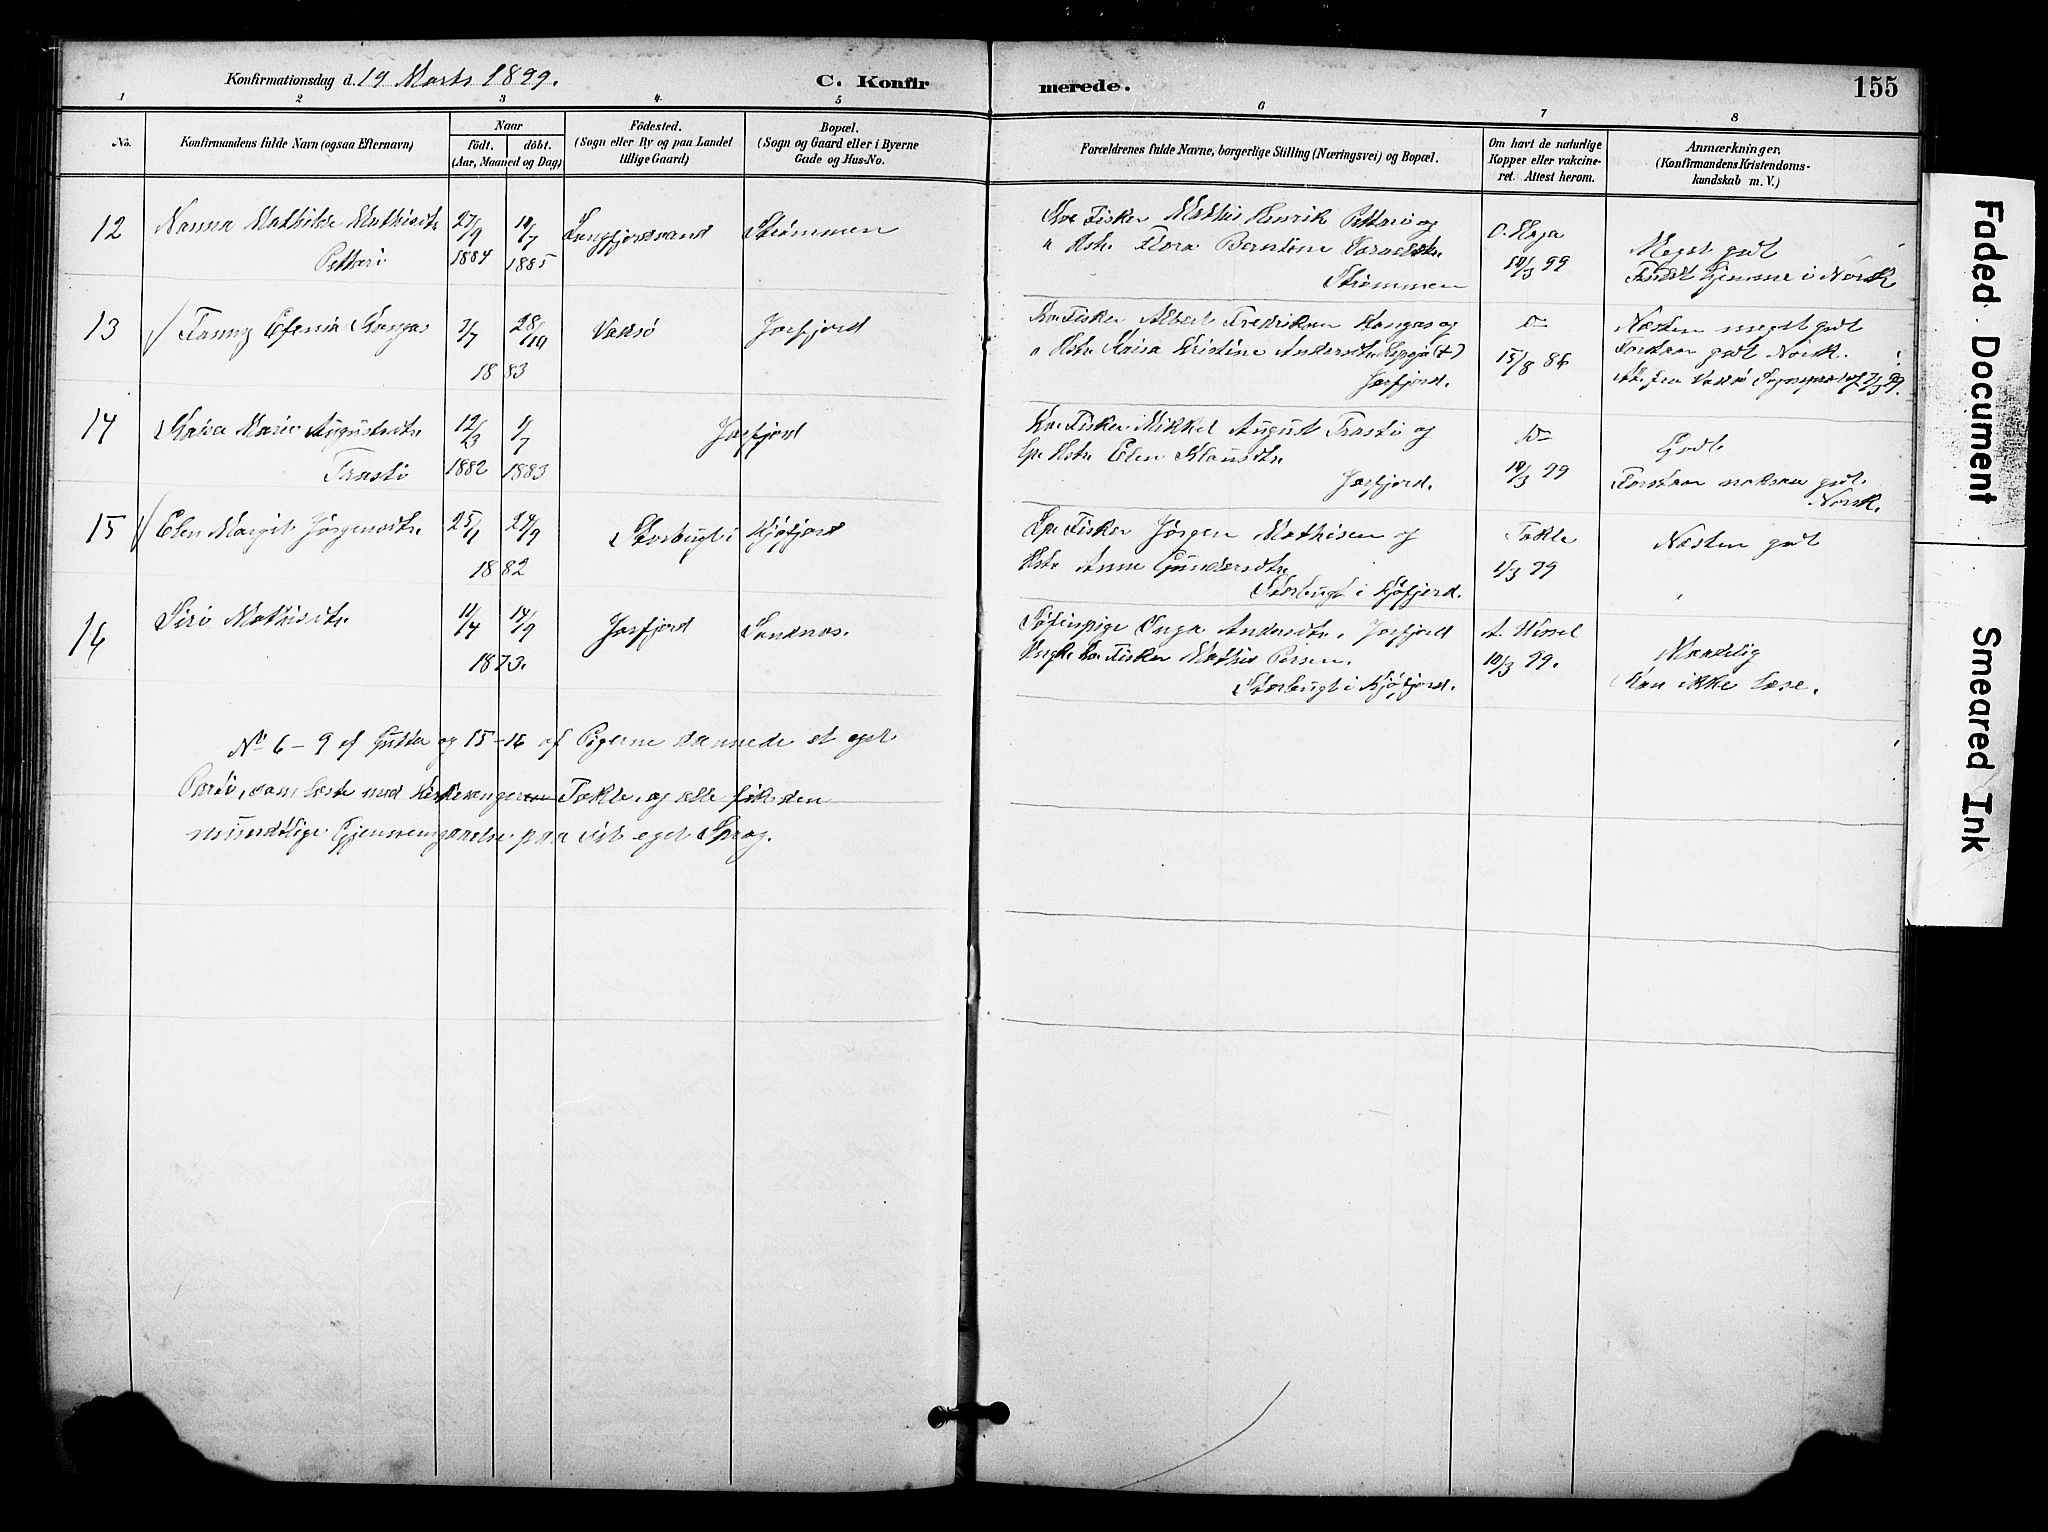 Konfirmationsdag d. 19 Marts 1899.
C. Konfirmerede.
155
1 2 3 4 5 6 7 8
No.
Konfirmandens fulde Navn (ogsaa Efternavn)
Naar
födt. döbt.
(Aar, Maaned og Dag)
Födested.
(Sogn eller By og paa Landet
tillige Gaard)
Bopæl.
(Sogn og Gaard eller i Byerne
Gade og Hus-No.
Forældrenes fulde Navne, borgerlige Stilling (Næringsvei) og Bopæl.
Om havt de naturlige
Kopper eller vakcine-
ret. Attest herom.
Anmærkninger,
(Konfirmandens Kristendoms-
kundskab m. V.)
12 Nanna Mathilde Mathisdtr
Pettari
27/9 1884
1885
Langfjordvand
Strømmen
Kv. Fisker Mathis Henrik Pettari og
Hstr. Flora
Strømmen
99
Meget godt
i Norsk
13 Fanny Efenia Kangas
7/7 28/10
1883
Vadsö
Jarfjord
Kv. Fisker Albert Fredriksen Kangas og
Hstr. Kaisa Kristine Andersdtr (+)
Jarfjord.
Do
15/8 86
Næsten meget godt
Forstaar godt Norsk.
Att. fra Vadsö
14 Kaisa Marie Augustsdtr
Trasti
12/3 1882
1/7 1883
Jarfjord
Kv. Fisker Mikkel August Trasti og
Hstr. Elen Klausdtr
Jarfjord.
Do
99
Godt
Forstaar noksaa godt
Norsk.
15 Elen Margit Jörgensdtr
25/1 24/9
1882
Storbugt i Kjöfjord
Lp. Fisker Jörgen Mathisen og
Hstr. Anne Gundersdtr
Storbugt i Kjöfjord.
Takle
1/3 99
Næsten godt
16 Siri Mathisdtr
11/4 14/9
1873.
Jarfjord
Sandnæs.
Söfinpige Inga Andersdtr, Jarfjord
Fisker Mathis Persen.
Storbugt i Kjöfjord.
A. Wessel
10/3 99.
Maadelig
Kan ikke læse.
No 6–9 af Gutter og 15–16 af Pigerne dannede et eget
Parti, som læste med Kirkesanger Takle, og alle fik den
mundtlige Gjennemgaaelse paa sit eget Sprog.
Faded Document Smeared Ink